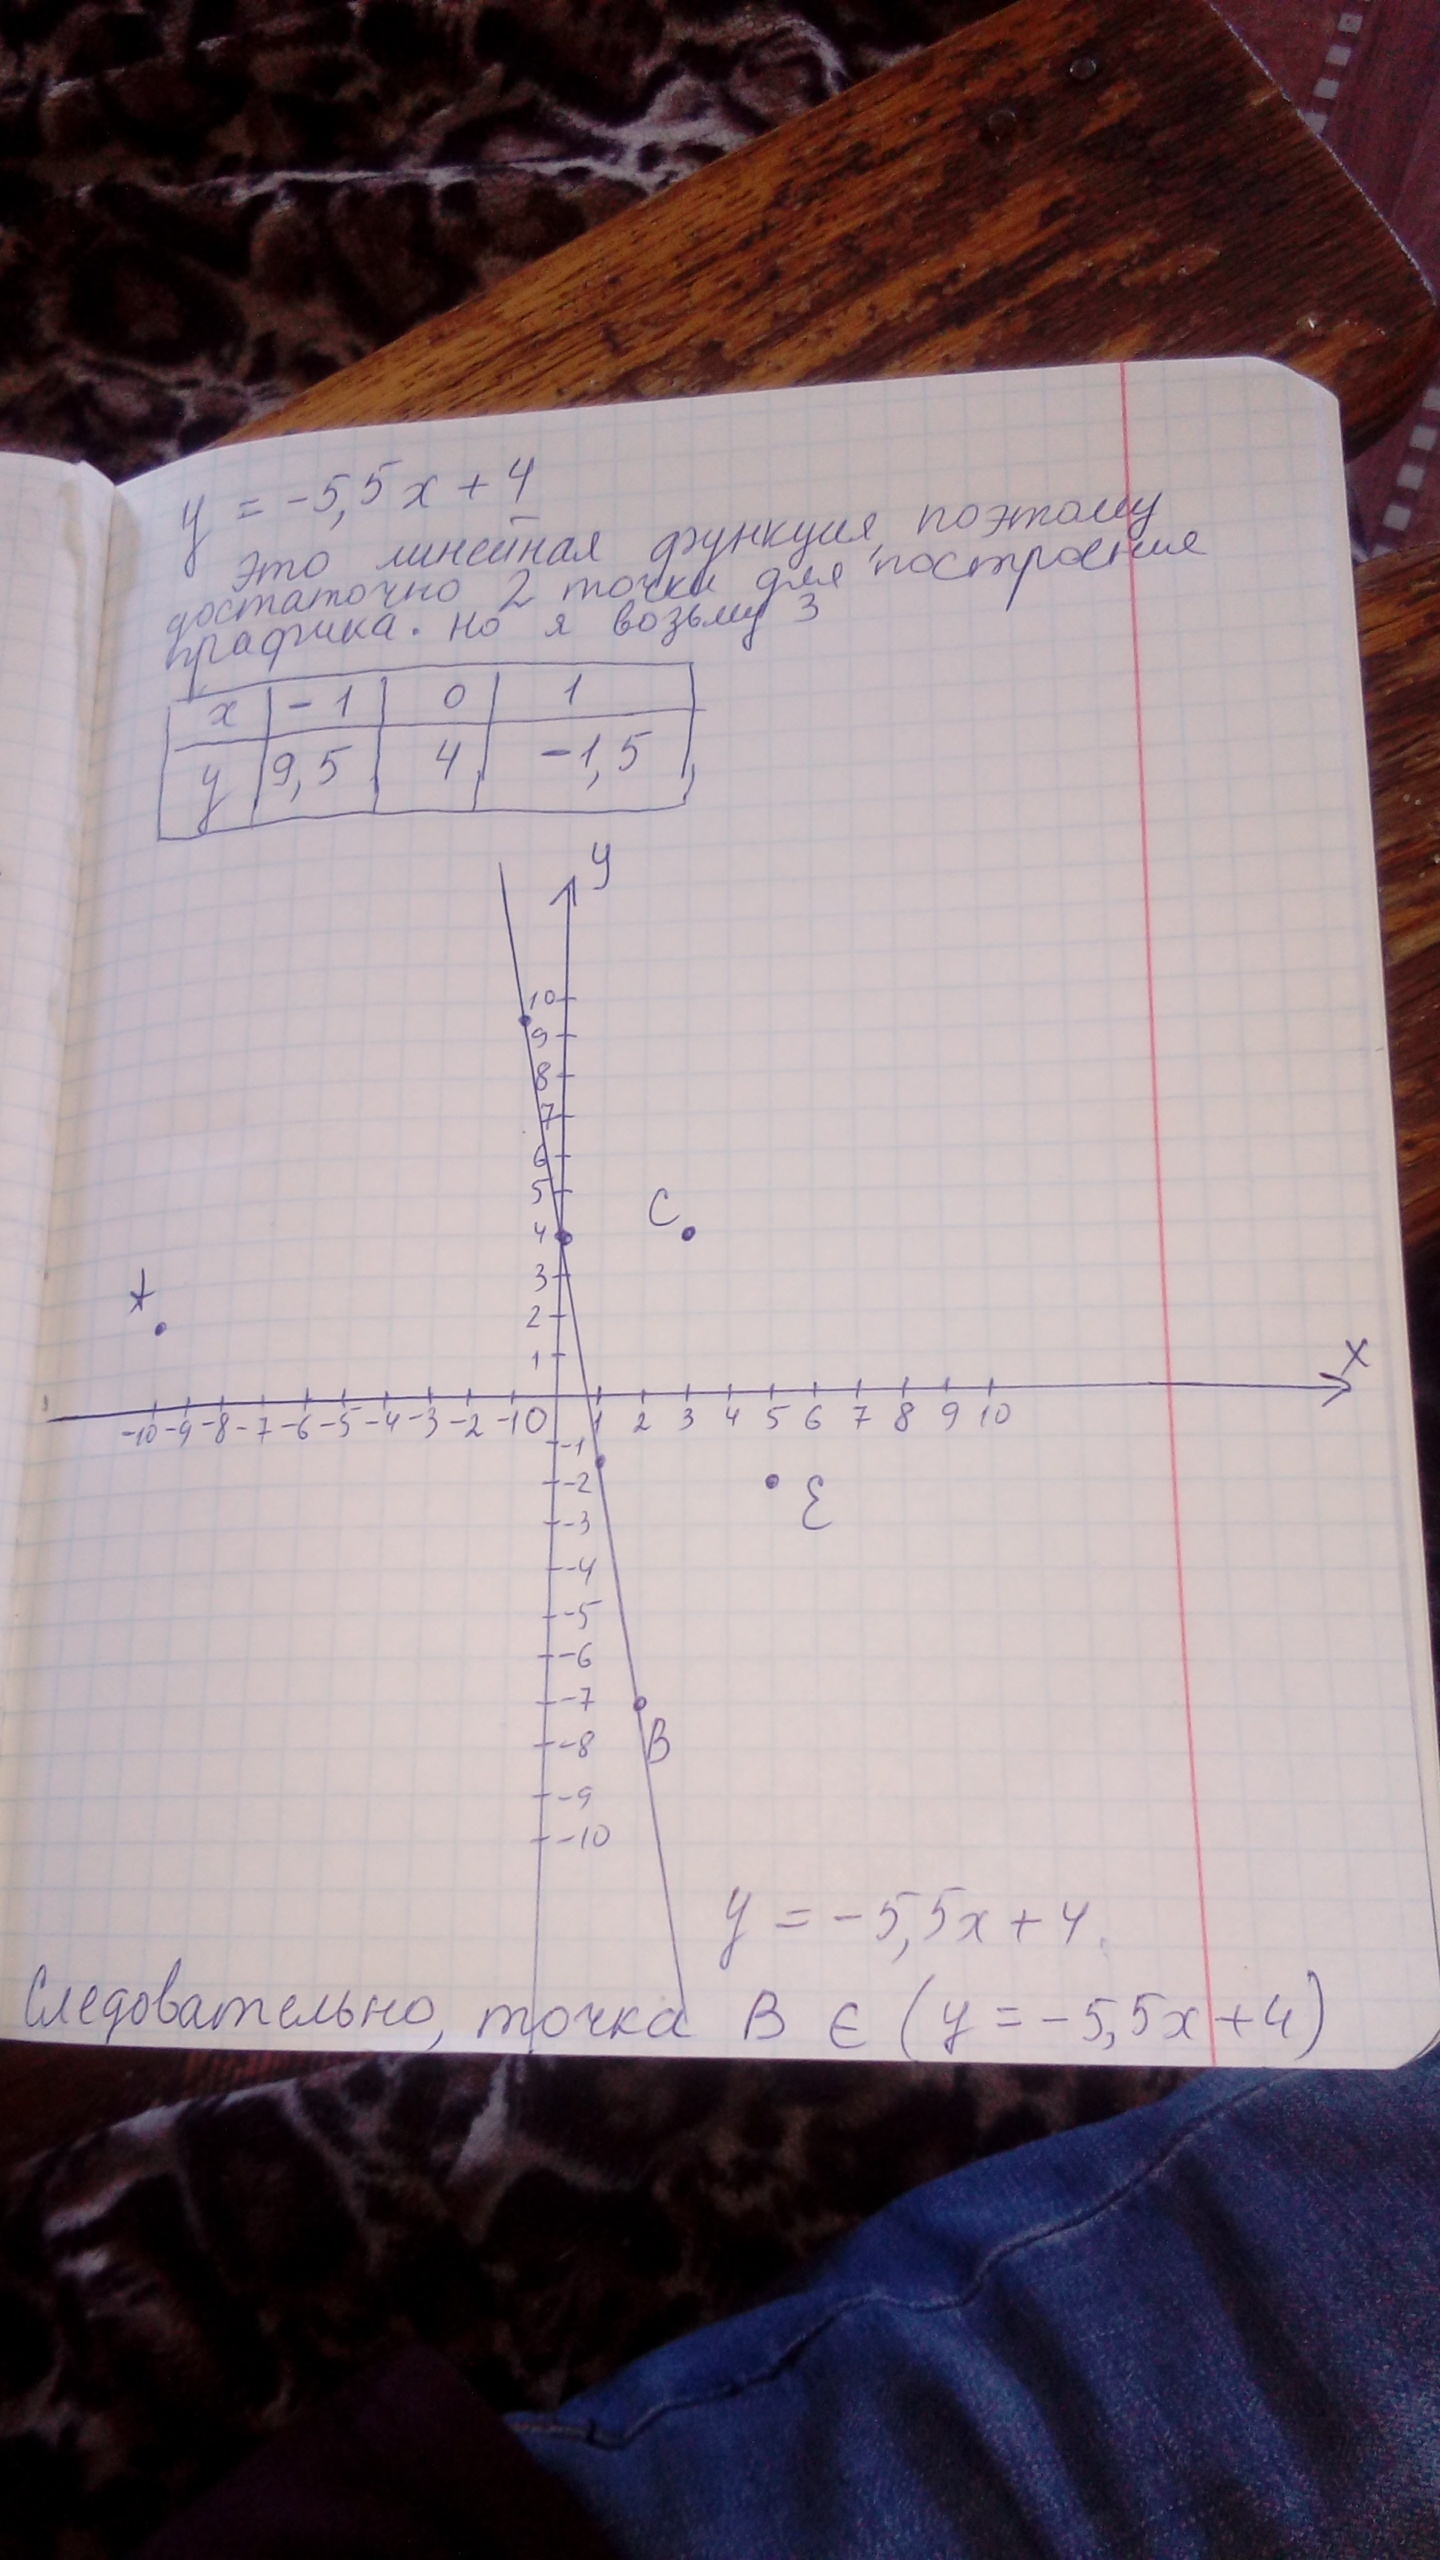 y = -5,5x + 4
Это линейная функция, поэтому
достаточно 2 точки для построения
графика. но я возьму 3
x -1 0 1
y 9,5 4 -1,5
y
10
9
8
7
6
5
C
4
3
A
2
1
x
-10 -9 -8 -7 -6 -5 -4 -3 -2 -1 0 1 2 3 4 5 6 7 8 9 10
-1
-2
E
-3
-4
-5
-6
-7
B
-8
-9
-10
y = -5,5x + 4
Следовательно, точка B ∈ (y = -5,5x + 4)